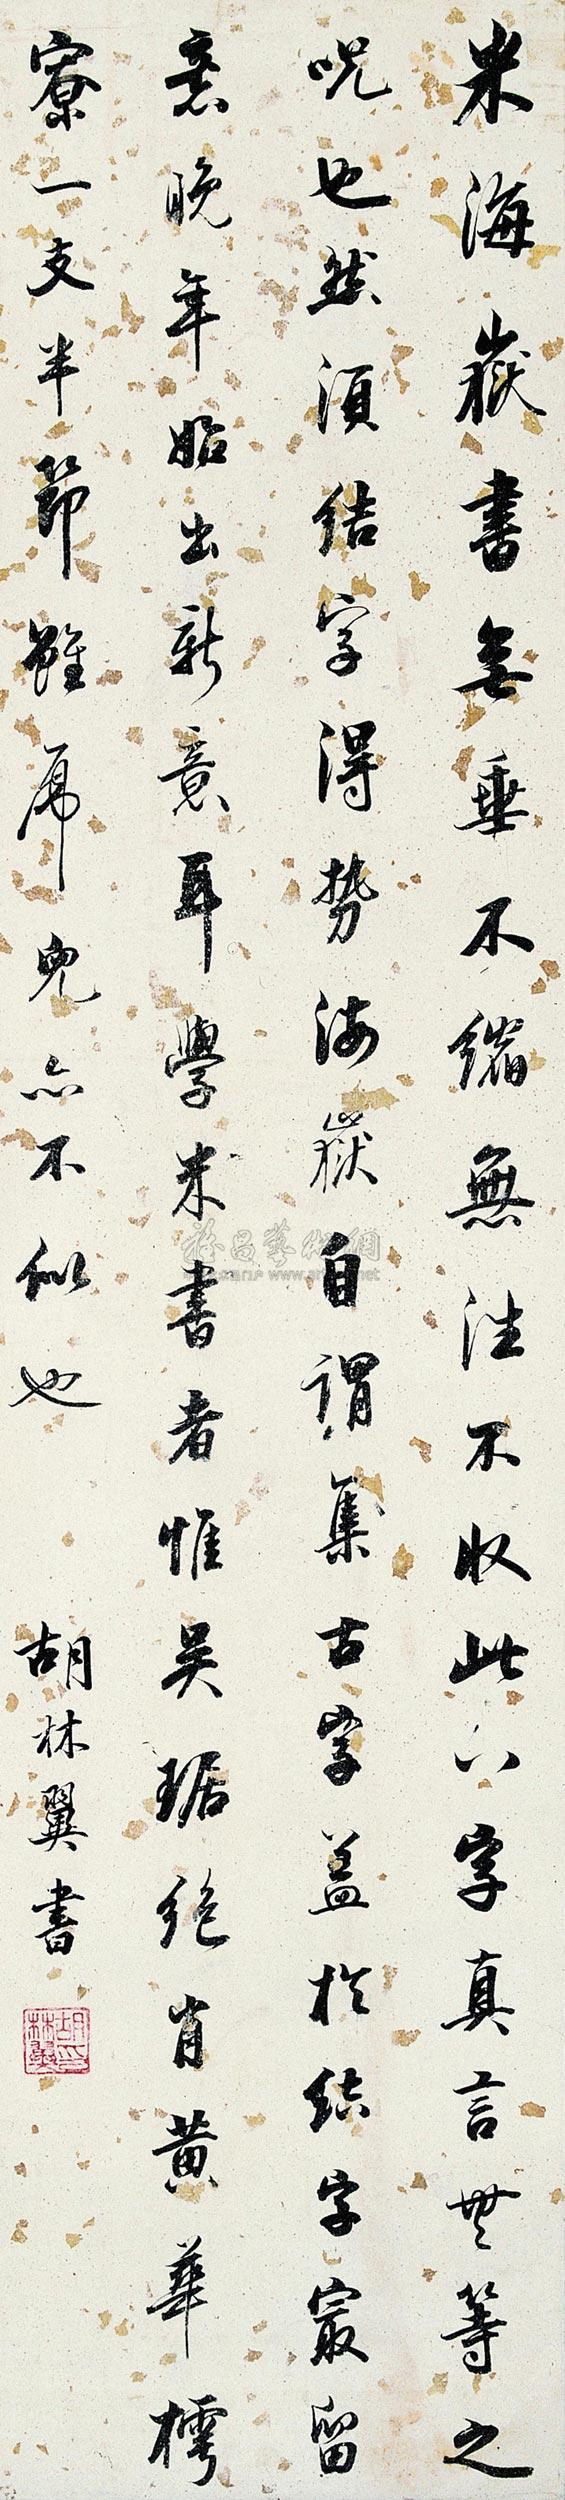 米海嶽書無垂不縮無往不收此八字真言無等之
呪也然須結字得勢海嶽自謂集古字蓋於結字最留
意晚年始出新意耳學米書者惟吳琚絕肖黃華樗
寮一支半節雖虎兒亦不似也
胡林翼書
胡林翼印